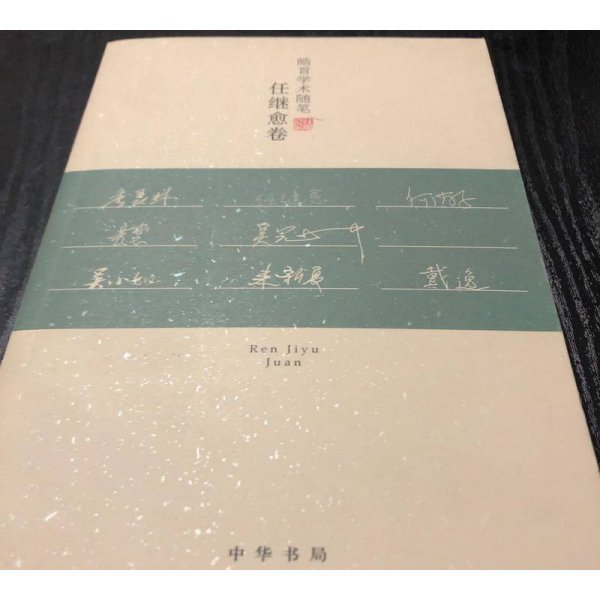 皓首学术随笔
任继愈卷
季羡林 任继愈 何兹全
黄宗 吴冠中
吴小如 来新夏 戴逸
Ren Jiyu
Juan
中华书局